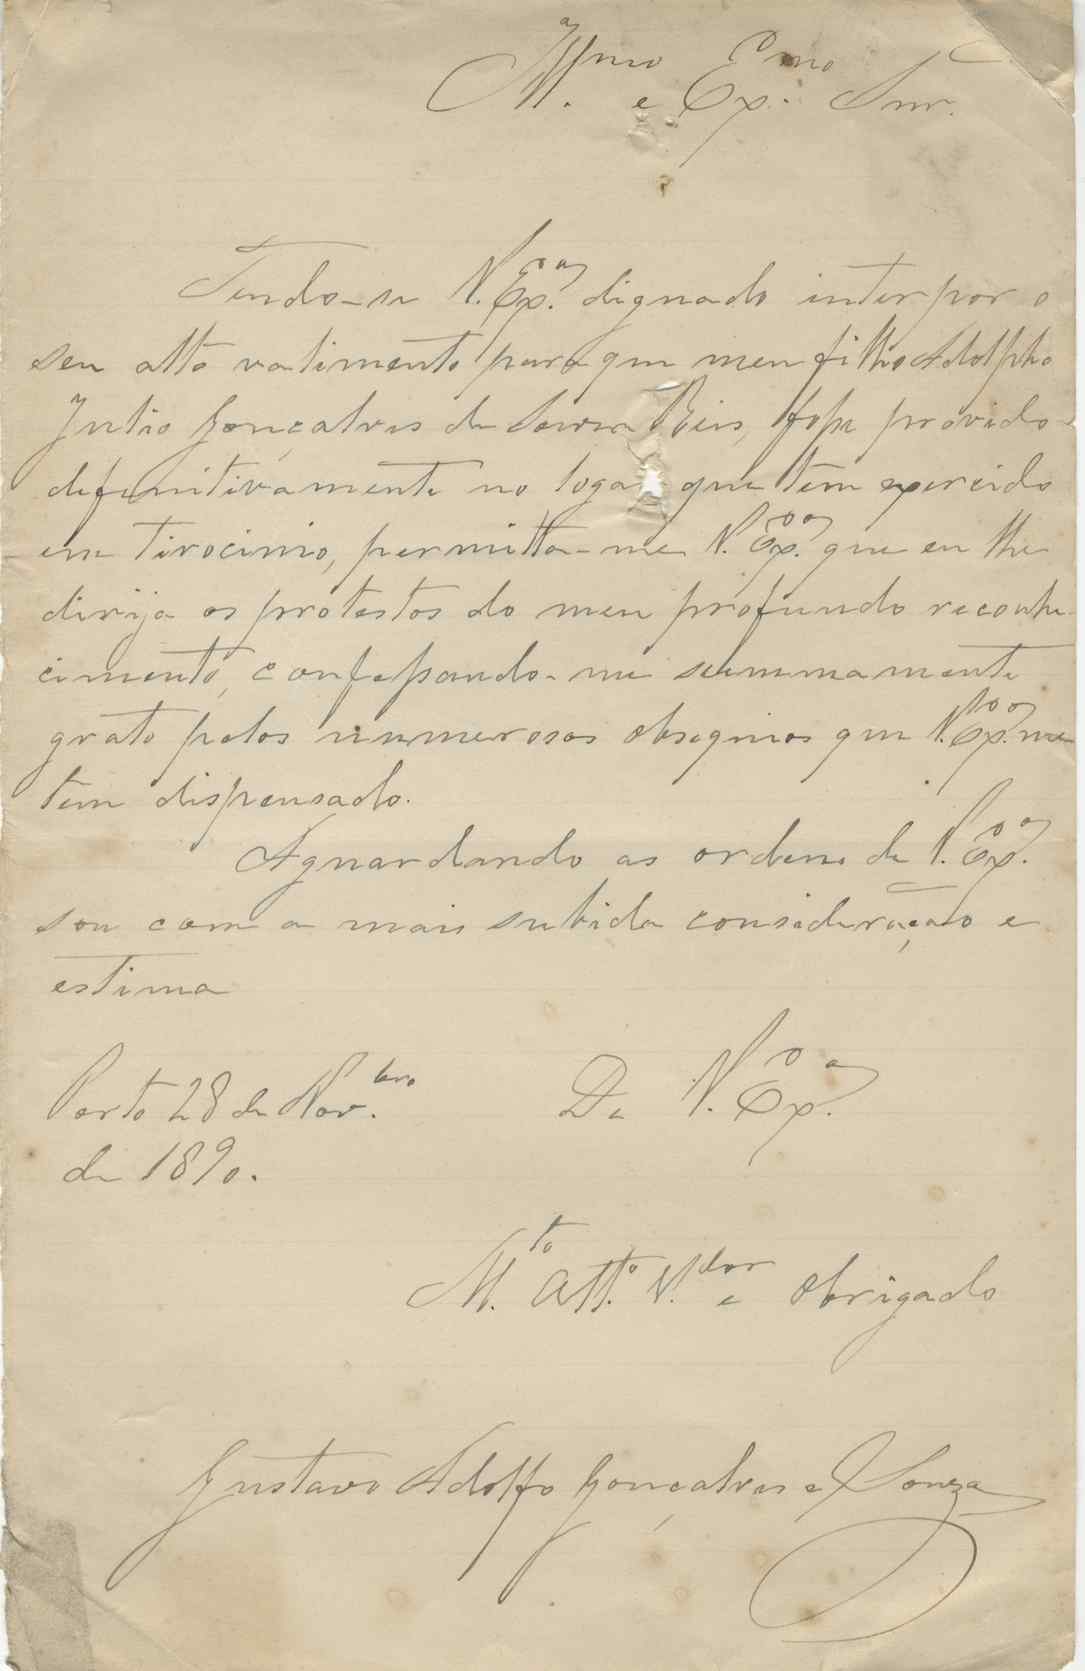 Ill.mo e Ex.mo Snr.
Tendo-se V. Ex.ª dignado interpor o
seu alto valimento para que meu filho Adolpho
Julio Gonçalves de Souza Reis, fosse provido
definitivamente no logar que tem exercido
em tirocinio, permitta-me V. Ex.ª que eu lhe
dirija os protestos do meu profundo reconhe-
cimento, confessando-me summamente
grato pelos numerosos obsequios que V. Ex.ª me
tem dispensado.
Aguardando as ordens de V. Ex.ª
sou com a mais subida consideração e
estima
Porto 28 de Nov.bro De V. Ex.ª
de 1890.
M.to Att.o V.dor e obrigado
Gustavo Adolfo Gonçalves e Souza